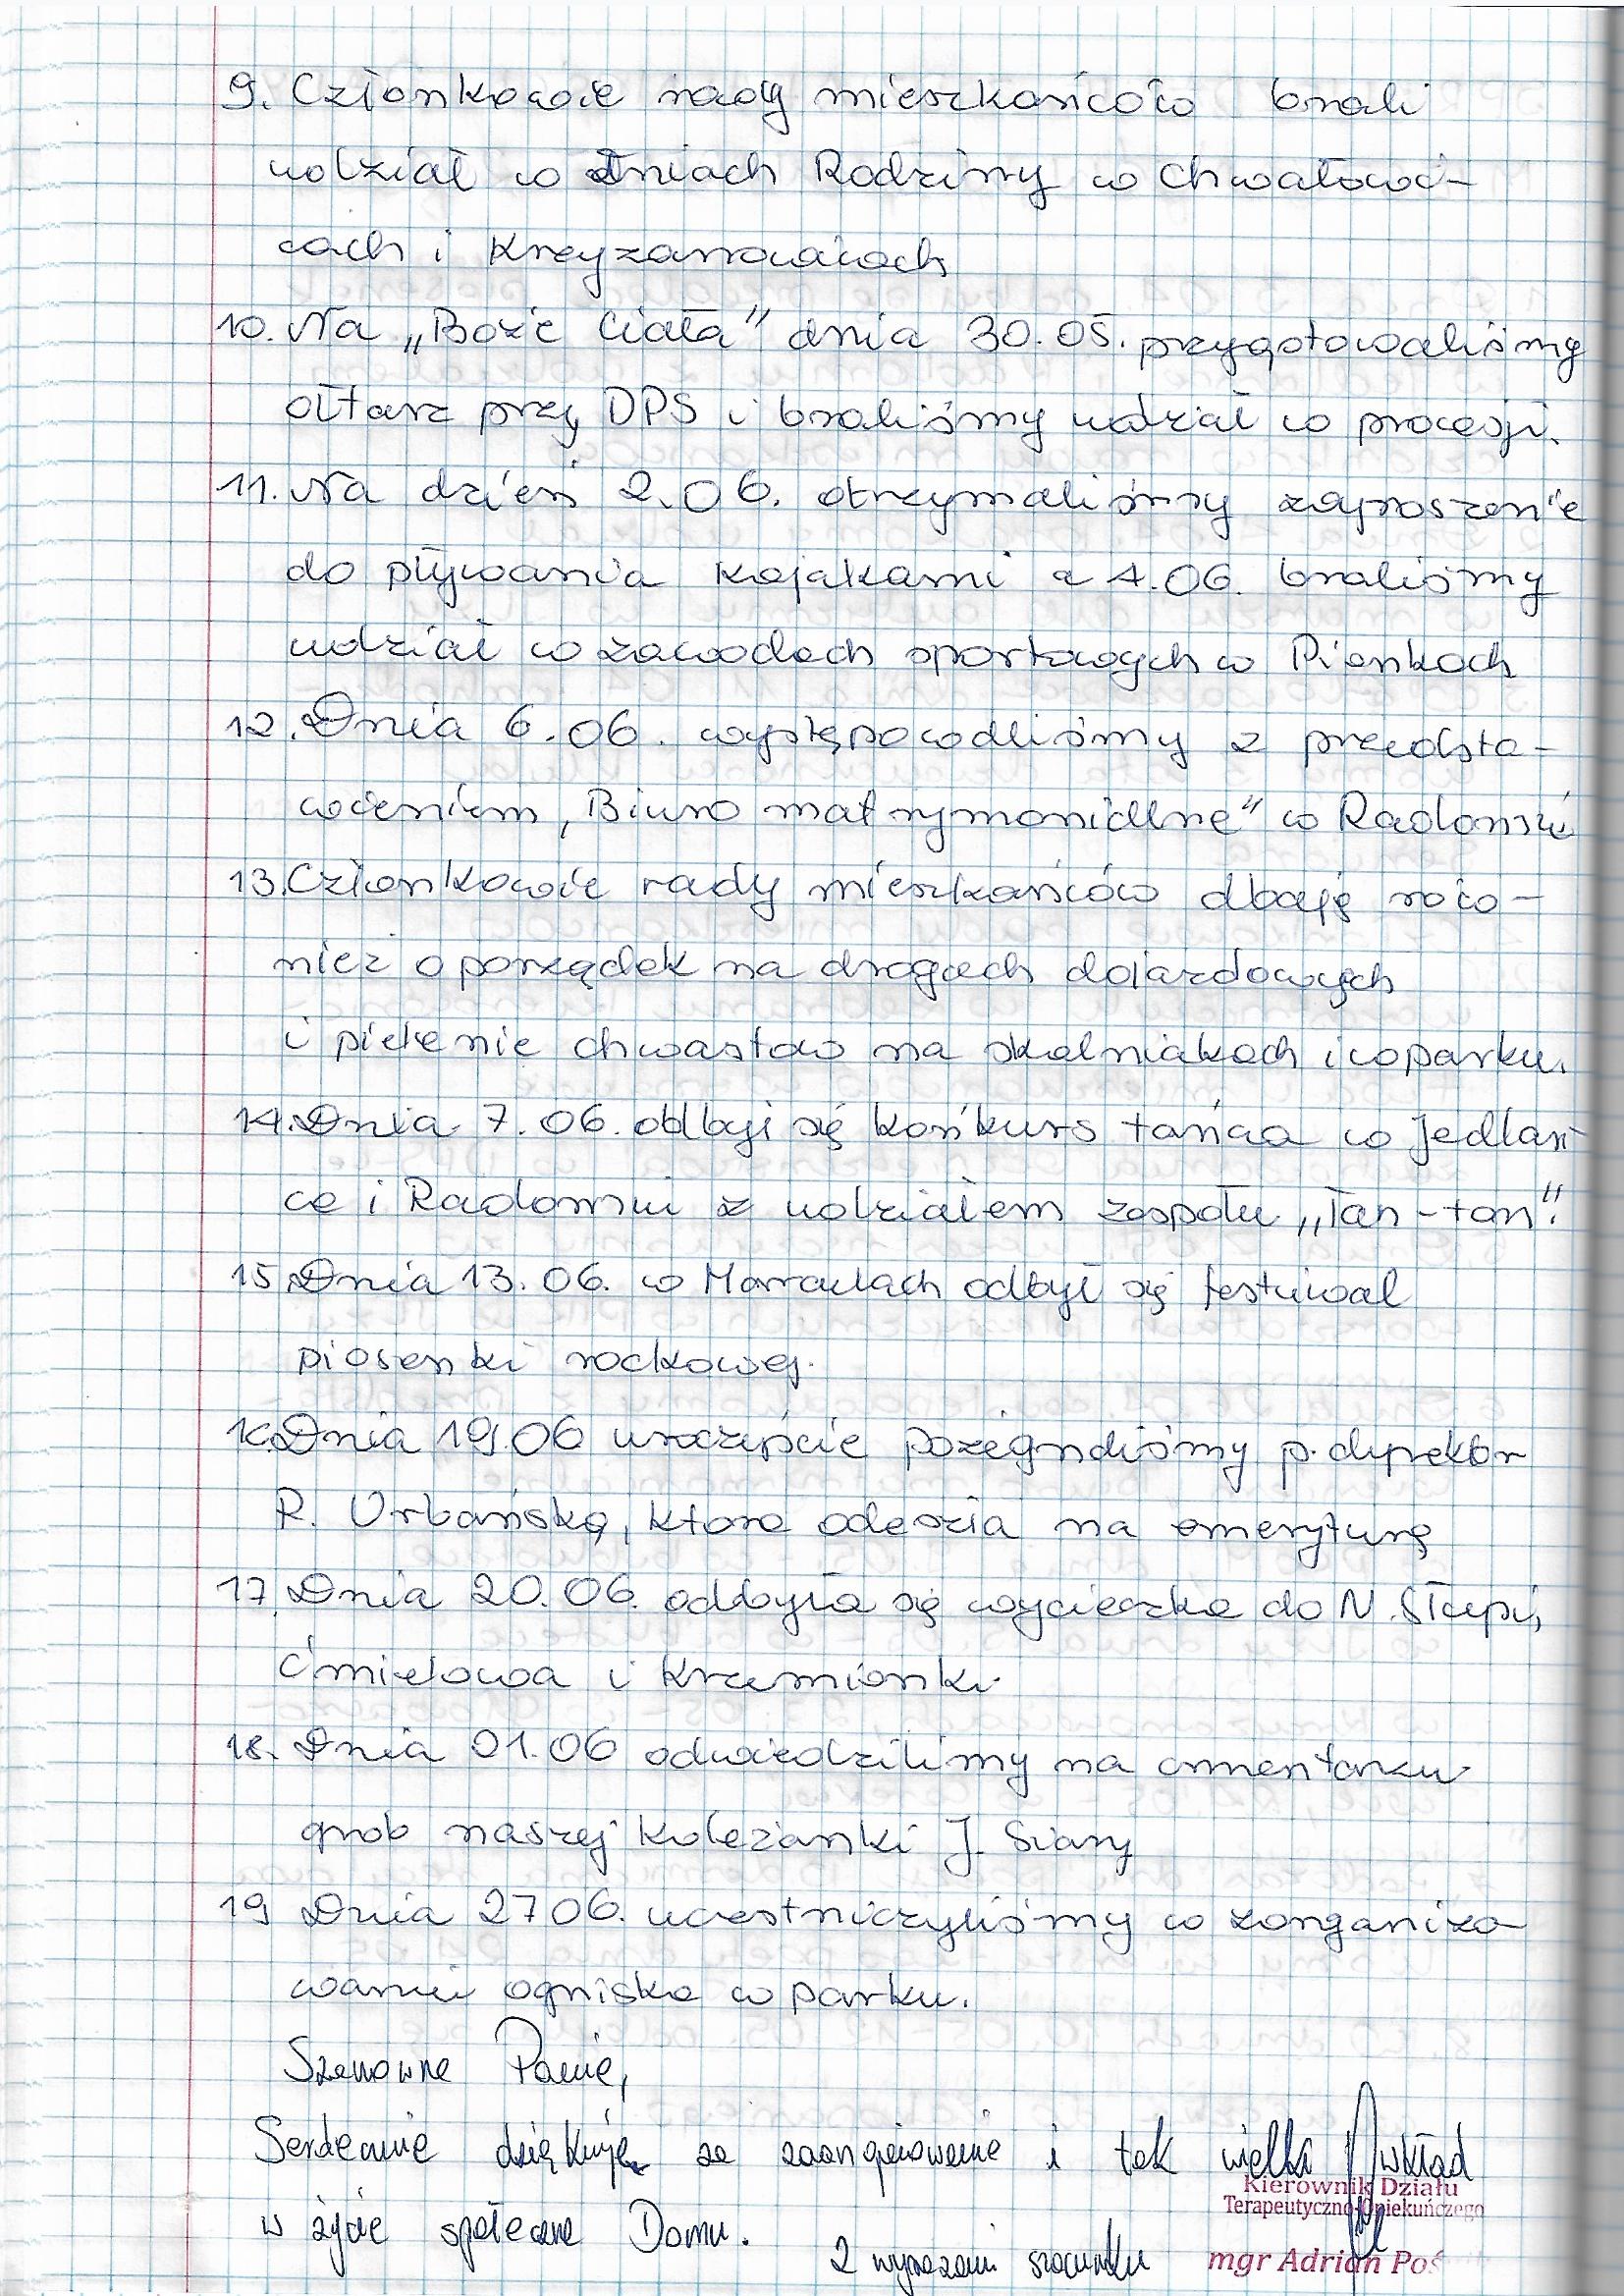 9. Członkowie rady mieszkańców brali
udział w dniach Rodziny w Chwałowi-
cach i Krzyżanowicach
10. Na „Boże Ciała" dnia 30.05. przygotowaliśmy
ołtarz przy DPS i braliśmy udział w procesji.
11. Na dzień 2.06. otrzymaliśmy zaproszenie
do pływania kajakami a 4.06. braliśmy
udział w zawodach sportowych w Pionkach
12. Dnia 6.06. występowaliśmy z przedsta-
wieniem „Biuro matrymonialne" w Radomiu
13. Członkowie rady mieszkańców dbają rów-
nież o porządek na drogach dojazdowych
i pielenie chwastow na skalniakach i w parku.
14. Dnia 7.06. odbył się konkurs tańca w Jedlani-
ce i Radomiu z udziałem zespołu „Tan-tan".
15. Dnia 13.06. w odbył się festiwal
piosenki rockowej.
16. Dnia 19.06 uroczyście pożegnaliśmy p. dyrektor
R. Urbańską, ktora odeszła na emeryturę
17. Dnia 20.06. odbyła się wycieczka do N. Słupi,
Ćmielowa i Krzemionki.
18. Dnia 21.06 odwiedzilimy na cmentarzu
grob naszej koleżanki J. Siary
19 Dnia 27 06. uczestniczyliśmy w zorganizo-
waniu ogniska w parku.
Szanowne Panie,
Serdecznie dziękuję za zaangażowanie i tak wielki wkład
w życie społeczne Domu.
Z wyrazami szacunku
Kierownik Działu
Terapeutyczno-Opiekuńczego
mgr Adrian Poś